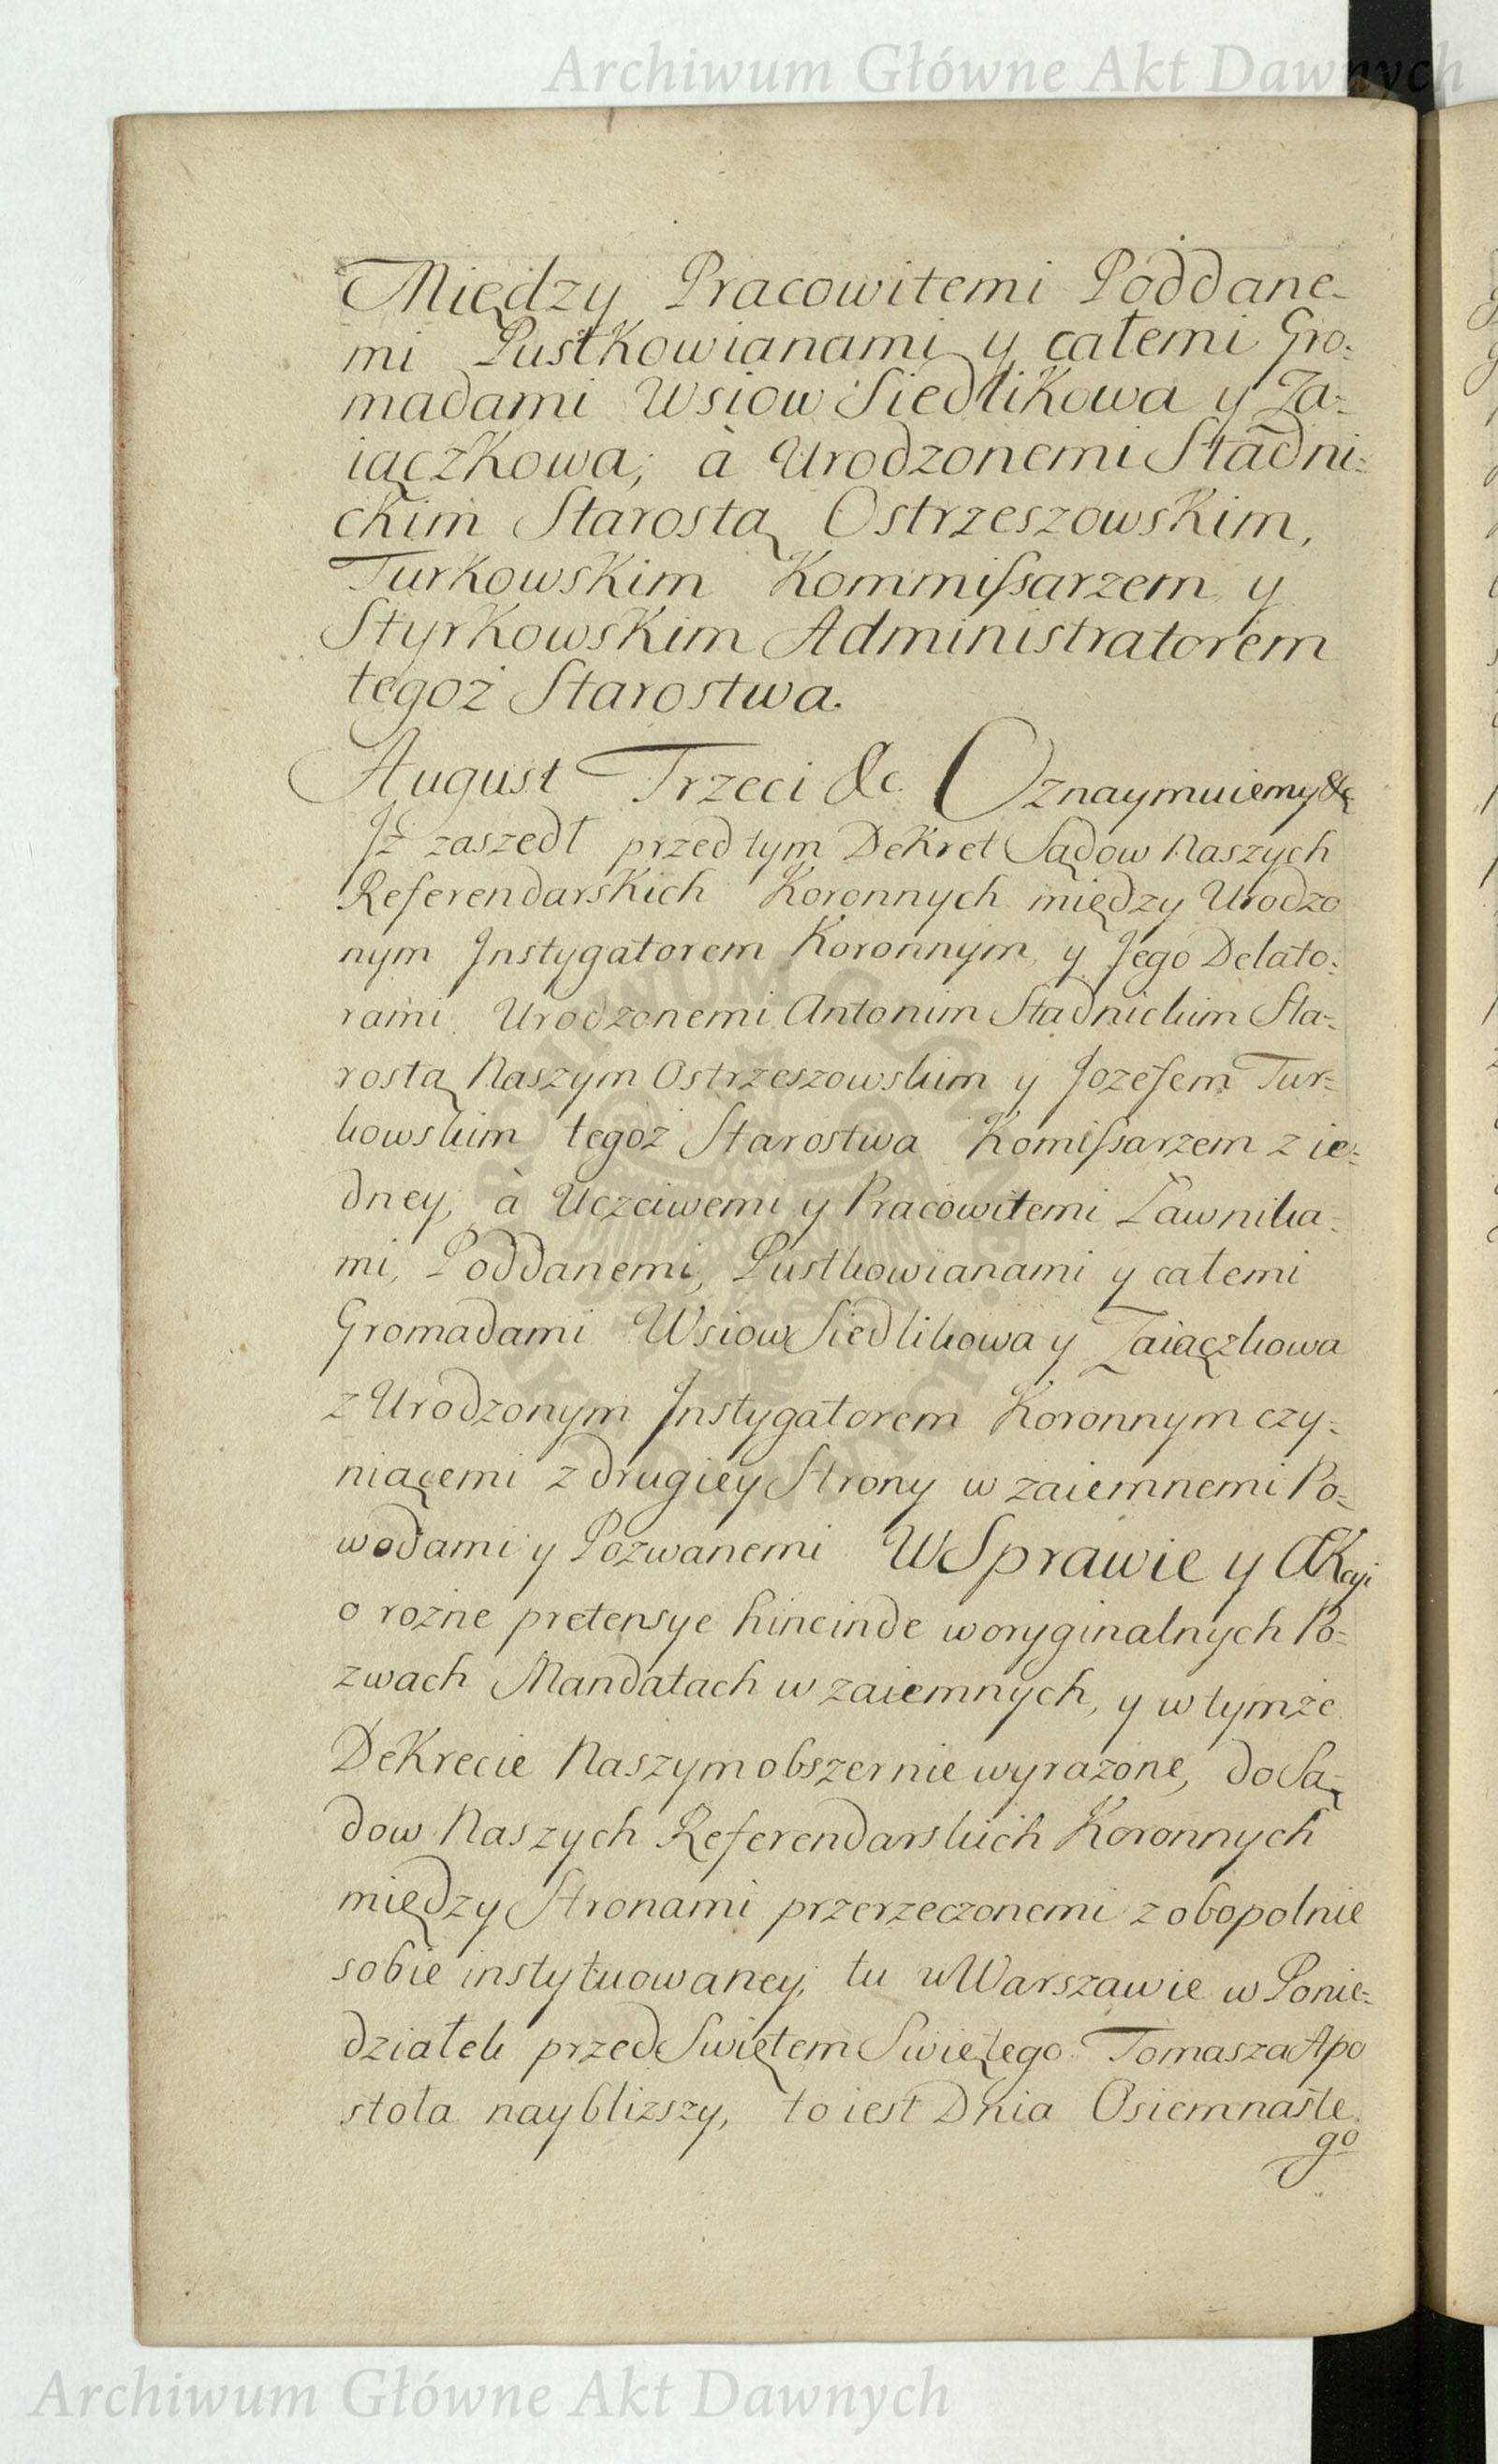 Archiwum Główne Akt Dawnych
Między Pracowitemi Poddane-
mi Pustkowianami y całemi Gro:
madami Wsiow Siedlikowa y Za:
iączkowa; à Urodzonemi Stadni:
ckim Starostą Ostrzeszowskim,
Turkowskim Kommiſsarzem y
Styrkowskim Administratorem
tegoż Starostwa.
August Trzeci &c. Oznaymuiemy &c
Jż zaszedł przed tym Dekret Sądow Naszych
Referendarskich Koronnych między Urodzo
nym Jnstygatorem Koronnym, y Jego Delato:
rami Urodzonemi Antonim Stadnickim Sta:
rostą Naszym Ostrzeszowskim y Jozefem Tur:
kowskim tegoż Starostwa Komiſsarzem z ie:
dney, à Uczciwemi y Pracowitemi Ławnika:
mi, Poddanemi, Pustkowianami y całemi
Gromadami Wsiow Siedlikowa y Zaiączkowa
z Urodzonym Jnstygatorem Koronnym czy:
niącemi z drugiey Strony w zaiemnemi Po:
wodami y Pozwanemi W Sprawie y Akcyi
o rożne pretensye hincinde w oryginalnych Po:
zwach Mandatach w zaiemnych, y w tymże
Dekrecie Naszym obszernie wyrażone, do Są:
dow Naszych Referendarskich Koronnych
między Stronami przerzeczonemi z obopolnie
sobie instytuowaney, tu w Warszawie w Ponie:
działek przed Swiętem Swiętego Tomasza Apo
stoła nayblizszy, to iest Dnia Osiemnaste
go
Archiwum Główne Akt Dawnych